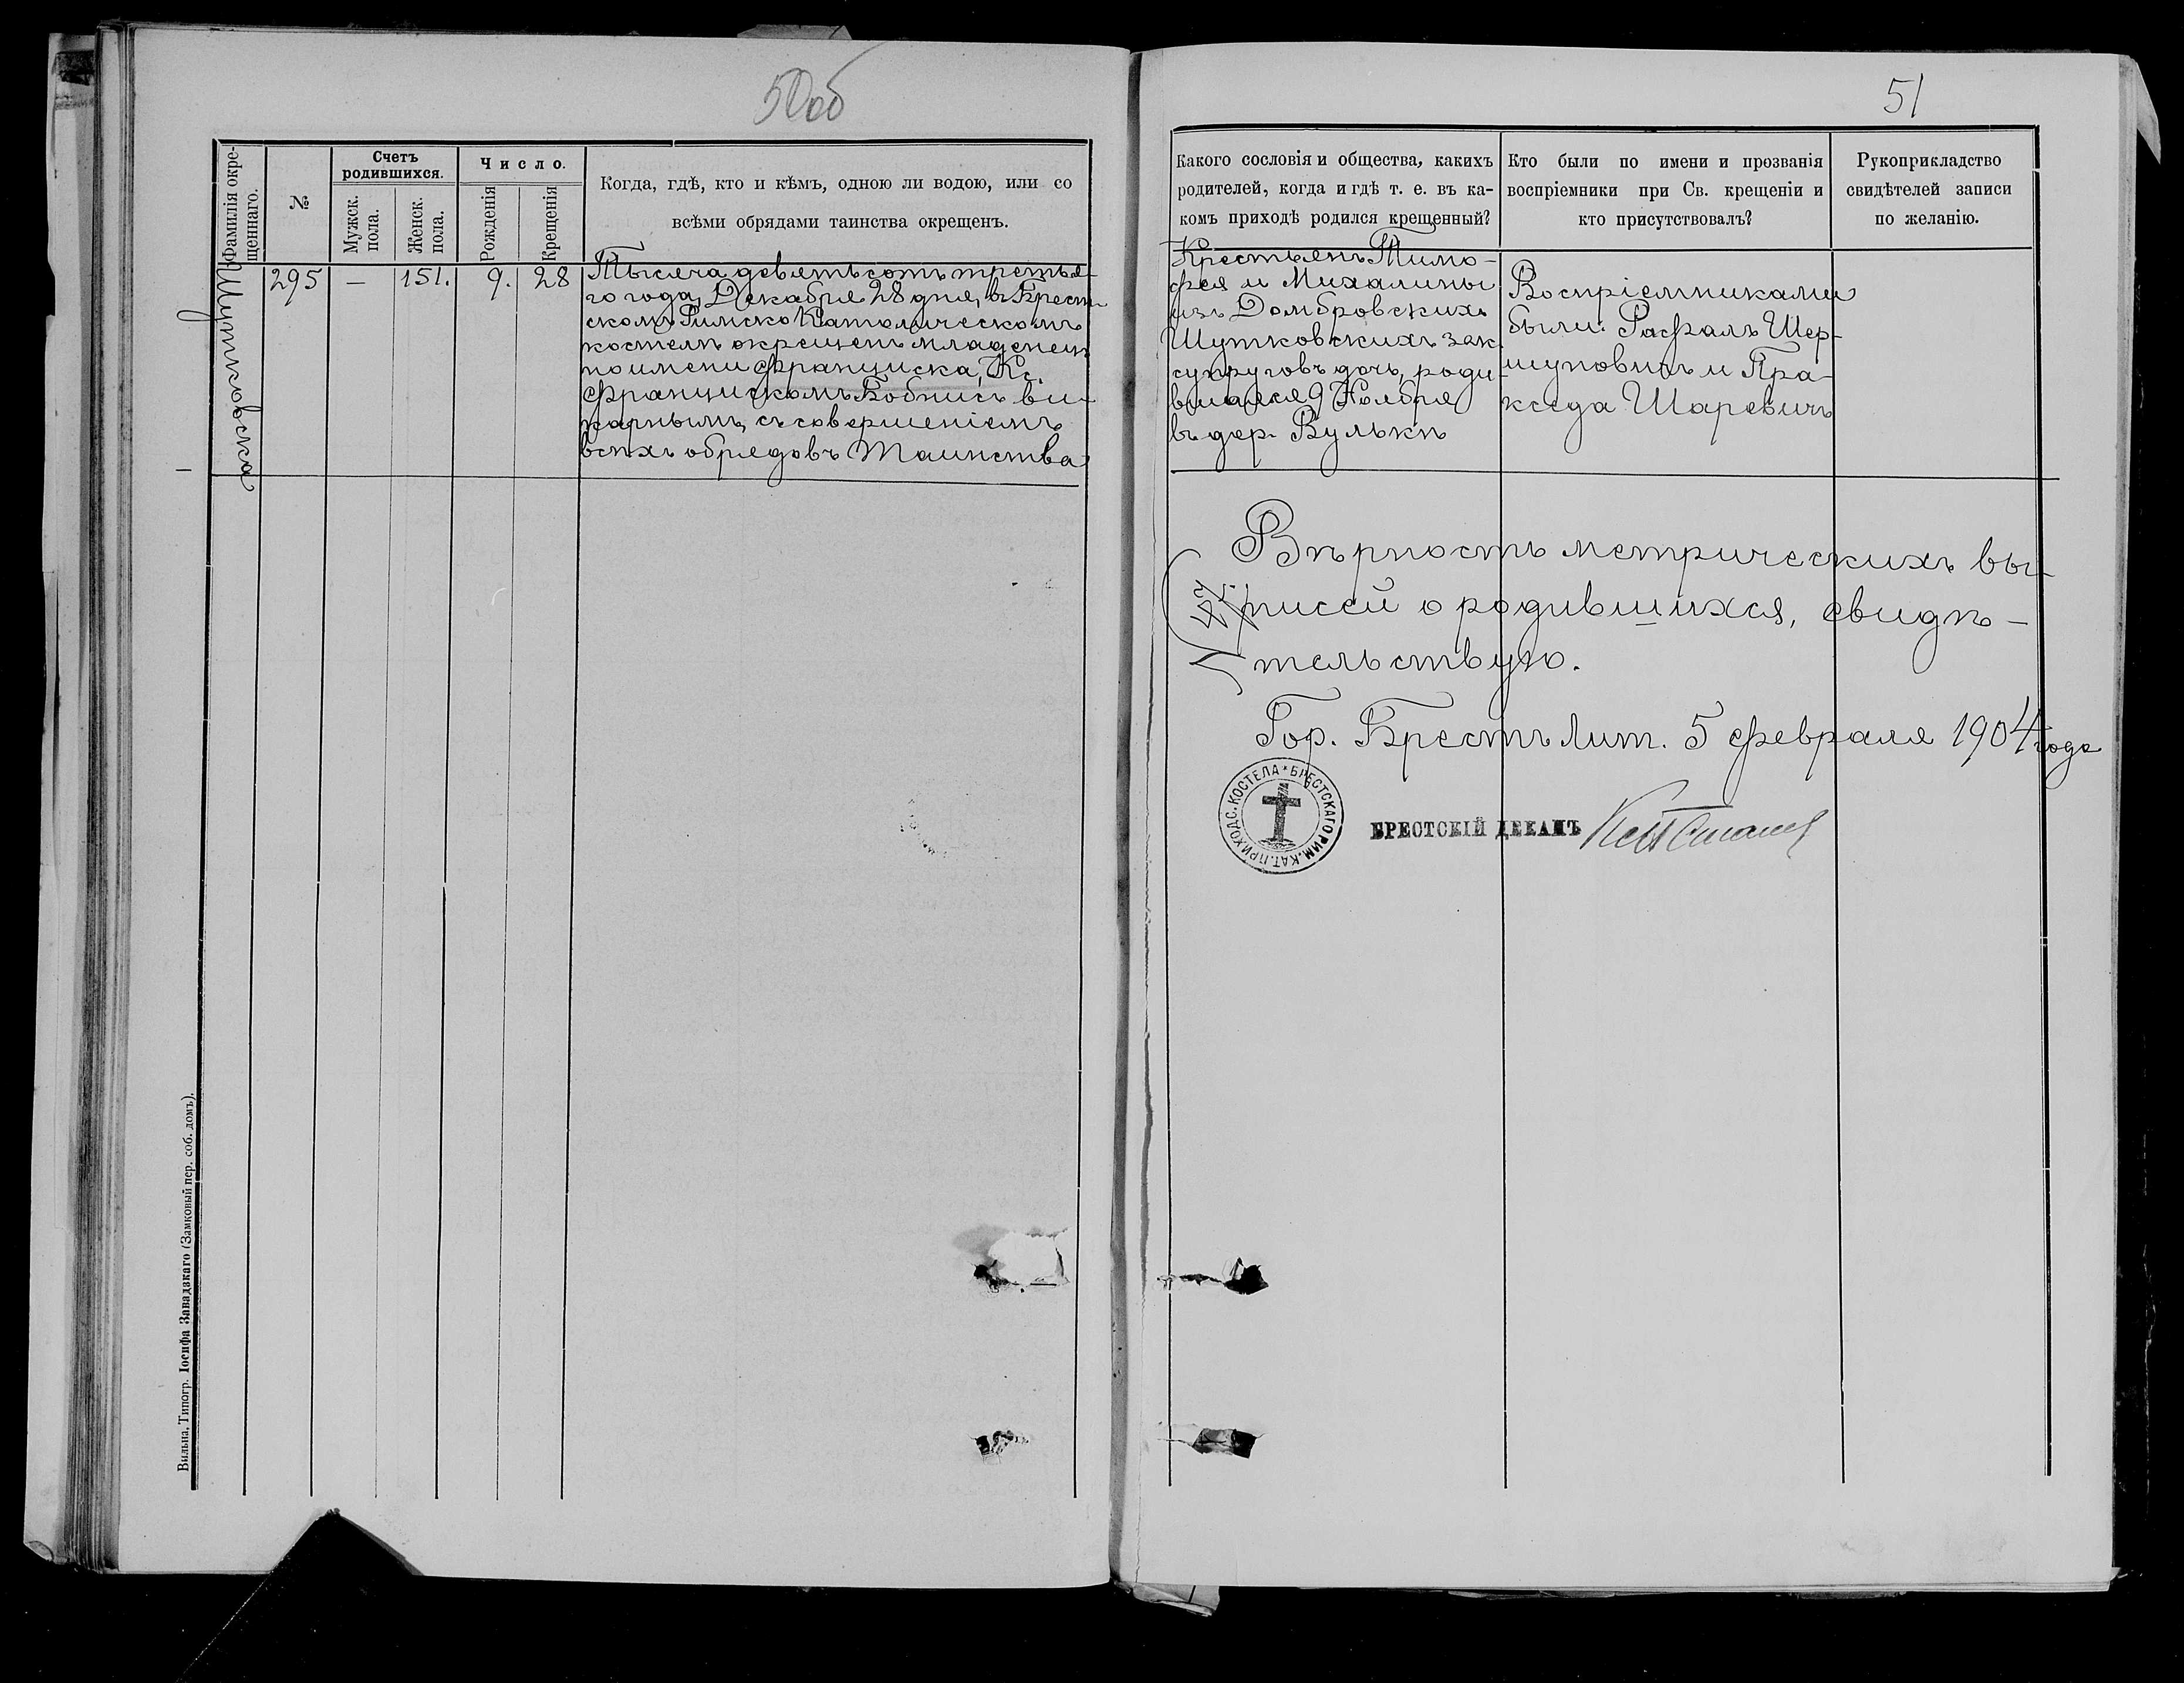 50об
Фамилія окре-
щеннаго.
№
Счетъ
родившихся.
Мужск.
пола.
Женск.
пола.
Число.
Рожденія
Крещенія
Когда, гдѣ, кто и кѣмъ, одною ли водою, или со
всѣми обрядами таинства окрещенъ.
Шутковска
295 — 151. 9. 28
Тысяча девятьсотъ третья-
го года, Декабря 28 дня, въ Брест-
скомъ Римско Католическомъ
костелѣ окрещенъ младенецъ
по имени Франциска, Кс.
Францискомъ Бобнисъ ви-
карнымъ, съ совершеніемъ
всѣхъ обрядовъ Таинства
Вильна, Типогр. Іосифа Завадзкаго (Замковый пер. соб. домъ).
51
Какого сословія и общества, какихъ
родителей, когда и гдѣ т. е. въ ка-
комъ приходѣ родился крещенный?
Кто были по имени и прозванія
воспріемники при Св. крещеніи и
кто присутствовалъ?
Рукоприкладство
свидѣтелей записи
по желанію.
Крестьянъ Тимо-
фея и Михалины
изъ Домбровскихъ
Шутковскихъ зак.
супруговъ дочь, роди-
вшаяся 9 Ноября
въ дер. Вулькѣ
Воспріемниками
были: Рафалъ Шер-
шуновичъ и Пра-
кседа Шаревичъ
Вѣрность метрическихъ вы-
писей о родившихся, свидѣ-
тельствую.
Гор. Брестъ Лит. 5 февраля 1904 года
БРЕСТСКАГО РИМ. КАТ. ПРИХОДС. КОСТЕЛА
БРЕСТСКІЙ ДЕКАНЪ